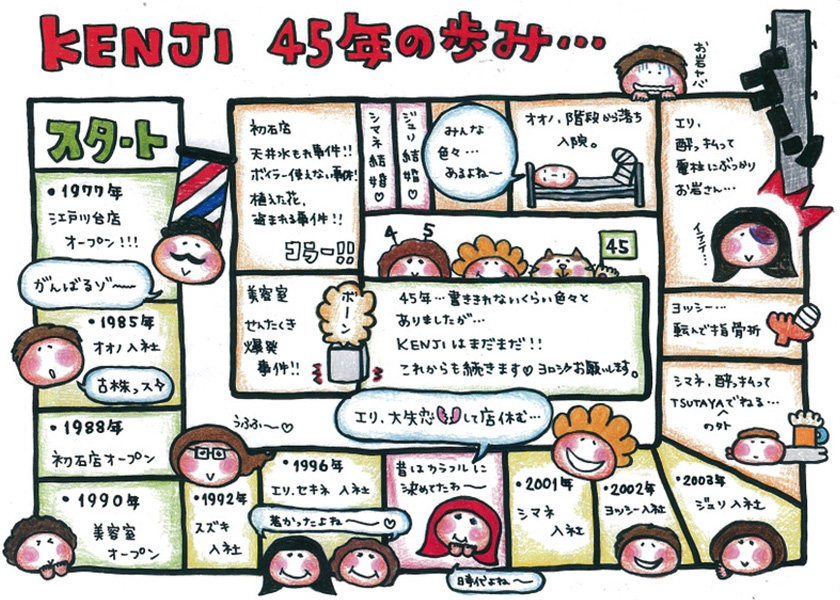 KENJI 45年の歩み…
スタート
・1977年
江戸川台店
オープン!!!
がんばるゾ〜〜
・1985年
オオノ入社
古株っス
・1988年
初石店オープン
・1990年
美容室
オープン
うふふ〜♡
・1992年
スズキ
入社
・1996年
エリ、セキネ 入社
若かったよね〜〜♡
昔はカラフルに
染めてたわ〜
時代よね〜
・2001年
シマネ
入社
・2002年
ヨッシー入社
・2003年
ジュリ入社
エリ、大失恋💔して店休む…
シマネ、酔っ払って
TSUTAYAでねる…
の外
ヨッシー…
転んで指骨折
エリ、
酔っ払って
電柱にぶつかり
お岩さん…
イテテ…
お岩ヤバ
オオノ、階段から落ち
入院。
みんな
色々…
あるよね〜
ジュリ結婚♡
シマネ結婚♡
初石店
天井水もれ事件!!
ボイラー使えない事件!
植えた花、
盗まれる事件!!
コラー!!
美容室
せんたくき
爆発
事件!!
ボーン
4 5
45
45年…書ききれないくらい色々と
ありましたが…
KENJIはまだまだ!!
これからも続きます♡ヨロシクお願いします。